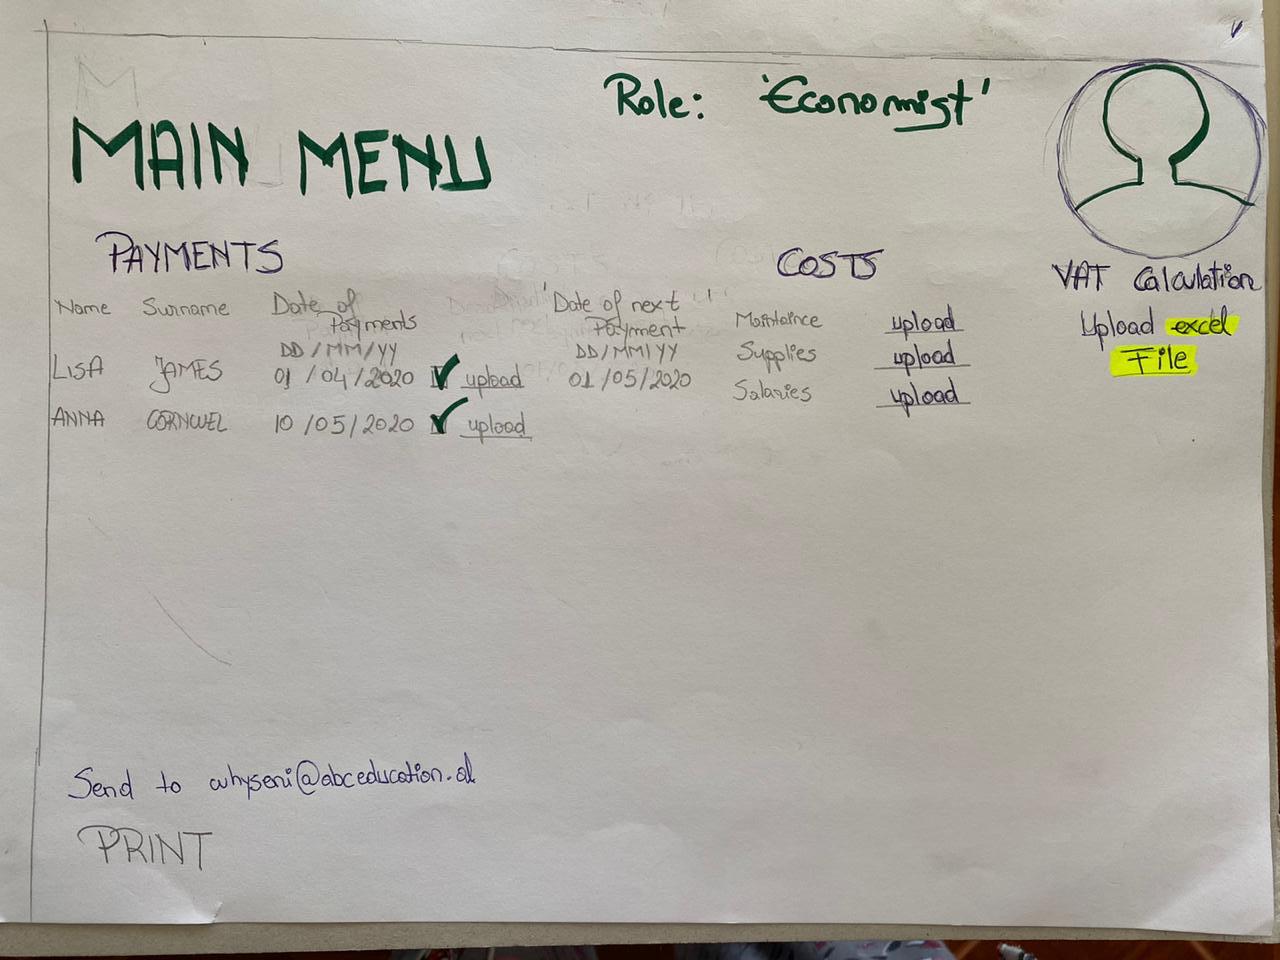 Role: 'Economist'
MAIN MENU
PAYMENTS
Name Surname Date of Payments 'Date of next Payment''
DD/MM/YY DD/MM/YY
LISA JAMES 01/04/2020 upload 01/05/2020
ANNA CORNWEL 10/05/2020 upload
COSTS
Maintaince upload
Supplies upload
Salaries upload
VAT Calculation
Upload excel
File
Send to whyseni@abceducation.al
PRINT